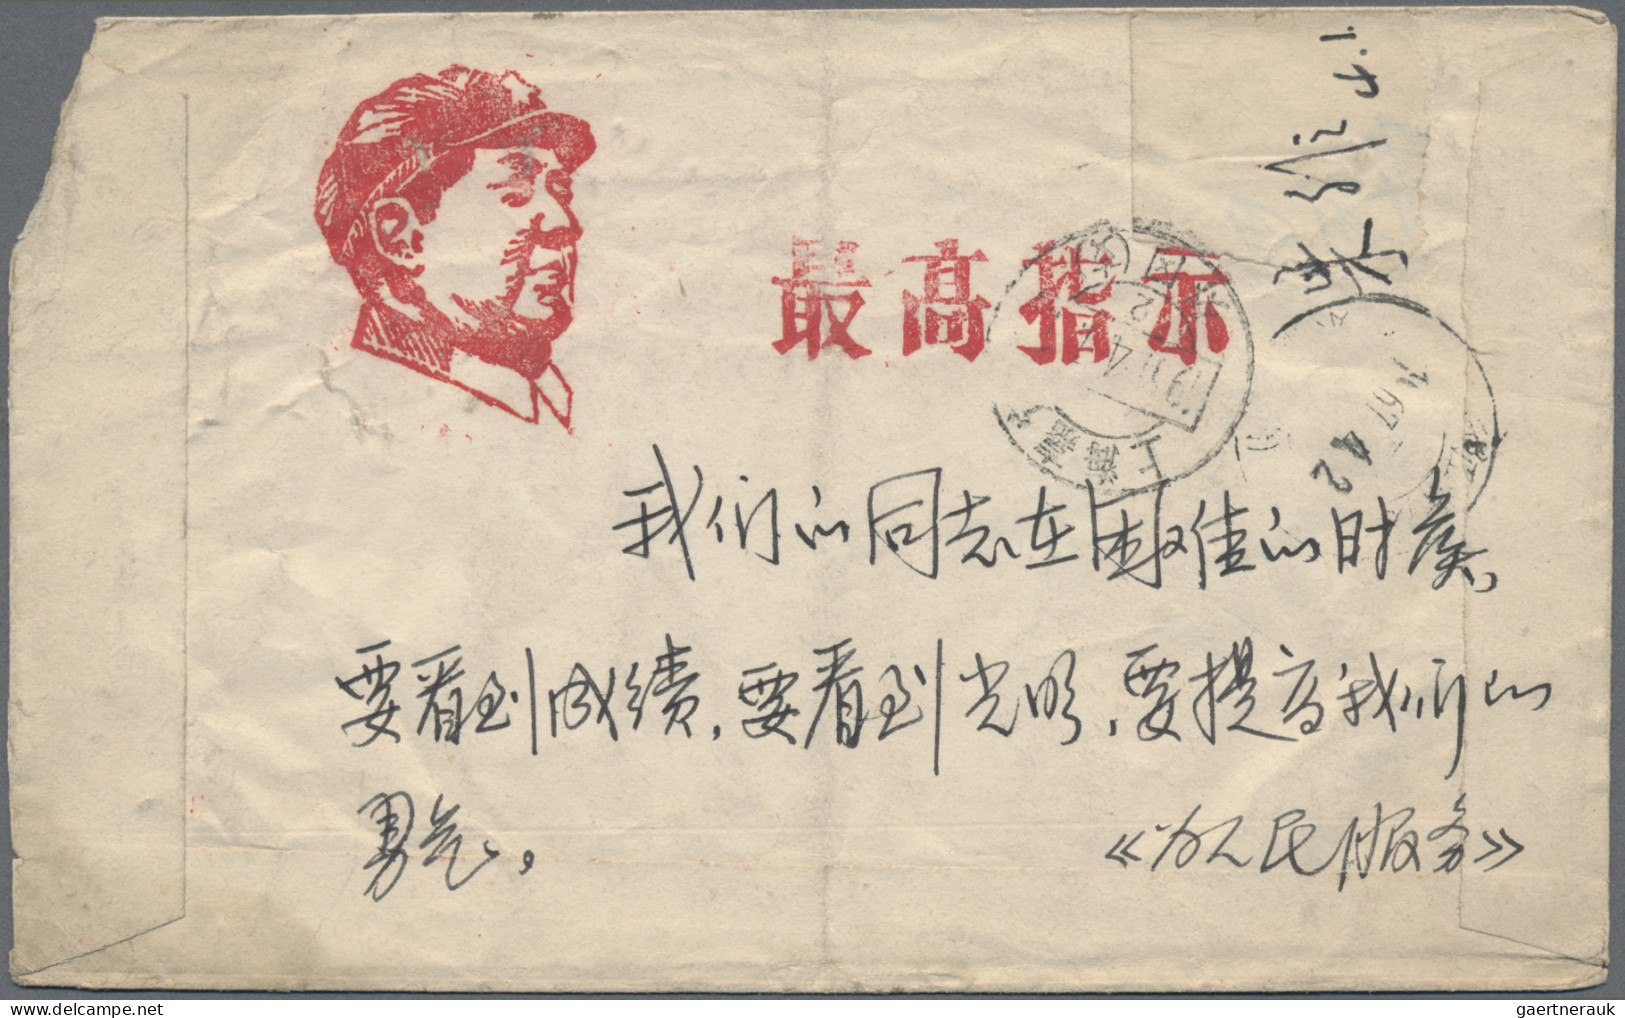 最高指示
我们的同志在困难的时候,
要看到成绩,要看到光明,要提高我们的
勇气。
《为人民服务》
上海嘉
1967.4.2
gaertnerauk